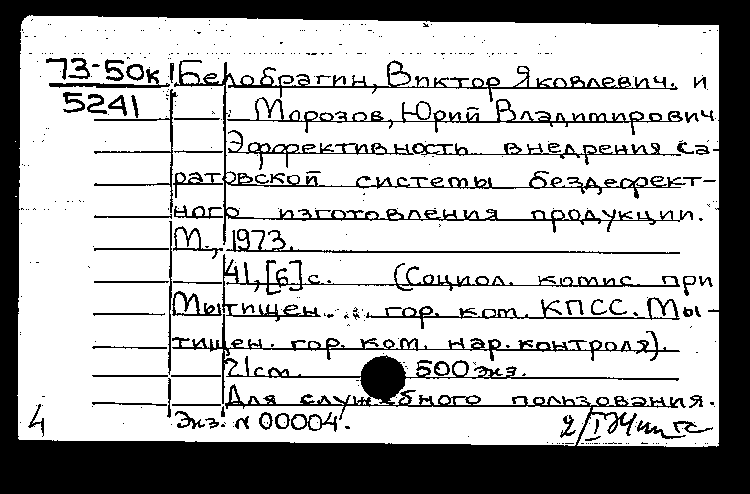 73-50к Белобрагин, Виктор Яковлевич. и
5241 Морозов, Юрий Владимирович
Эффективность внедрения са-
ратовской системы бездефект-
ного изготовления продукции.
М., 1973.
41,[6]с. (Социол. комис. при
Мытищен... гор. ком. КПСС. Мы-
тищен. гор. ком. нар. контроля).
21см. 500 экз.
Для служебного пользования.
4 Экз. № 00004.